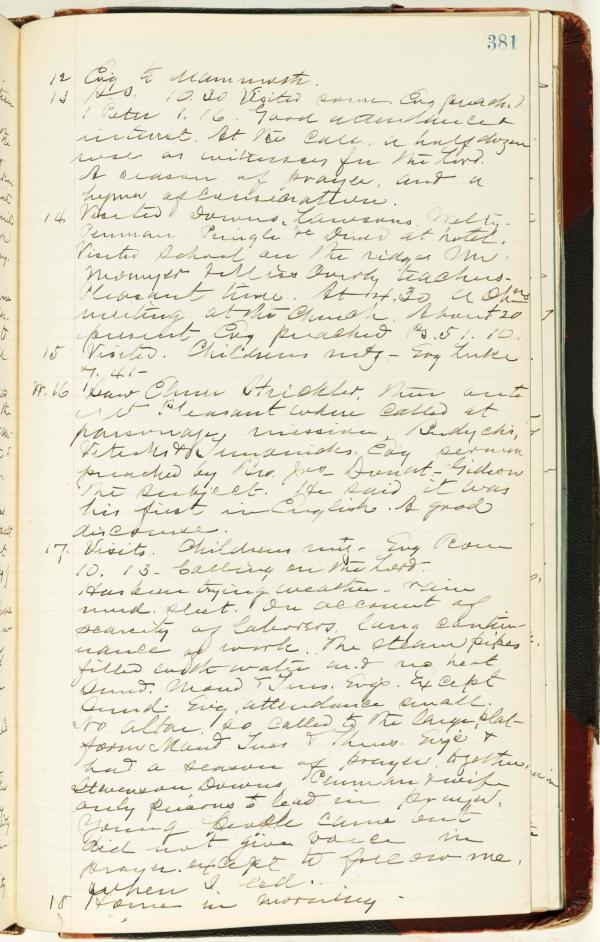 381
12 Evg to Mammoth.
13 S.S. 10.30 Visited some. Evg preached
1 Peter 1.16. Good attendance &
interest. At the call a half dozen
rose as witnesses for the Lord.
A season of prayer, and a
hymn of consecration.
14 Visited Downs, Lawsons, Welty
Penman Pringle &c Dined at hotel.
Visited School on the ridge Mr.
& Miss Overly teachers.
Pleasant time. At 4.30 a
meeting at the Church. About 20
present Evg preached Ps. 51.10.
15 Visited. Childrens mtg - Evg Luke
7.41-
W. 16 Saw Elmer Strickler, then onto
Mt Pleasant where called at
parsonage, mission,
Evg sermon
preached by Bro. Jno Donat - Gideon
the subject. He said it was
his first in English. A good
discourse.
17. Visits. Childrens mtg - Evg Rom
10. 13 - Calling on the Lord.
Has been trying weather - rain
mud. sleet. On account of
scarcity of laborers, long contin-
uance of work. The steam pipes
filled with water and no heat
Sund. Mond & Tues. Evgs. Except
Sund. Evg, attendance small.
No altar, so called to the large plat-
form Mond Tues & Thurs. Evgs &
had a season of prayer together
Stevenson, Downs, Penman & wife
only persons to lead in prayer.
Young people came out
did not give voice in
prayer except to follow me,
when I
18 Home in morning.